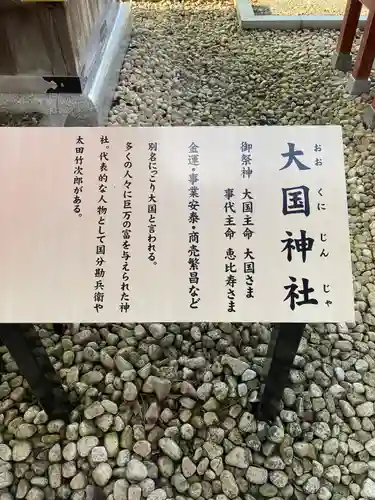 大国神社
おおくにじんじゃ
御祭神 大国主命 大国さま
事代主命 恵比寿さま
金運・事業安泰・商売繁昌など
別名にっこり大国と言われる。
多くの人々に巨万の富を与えられた神
社。代表的な人物として国分勘兵衛や
太田竹次郎がある。